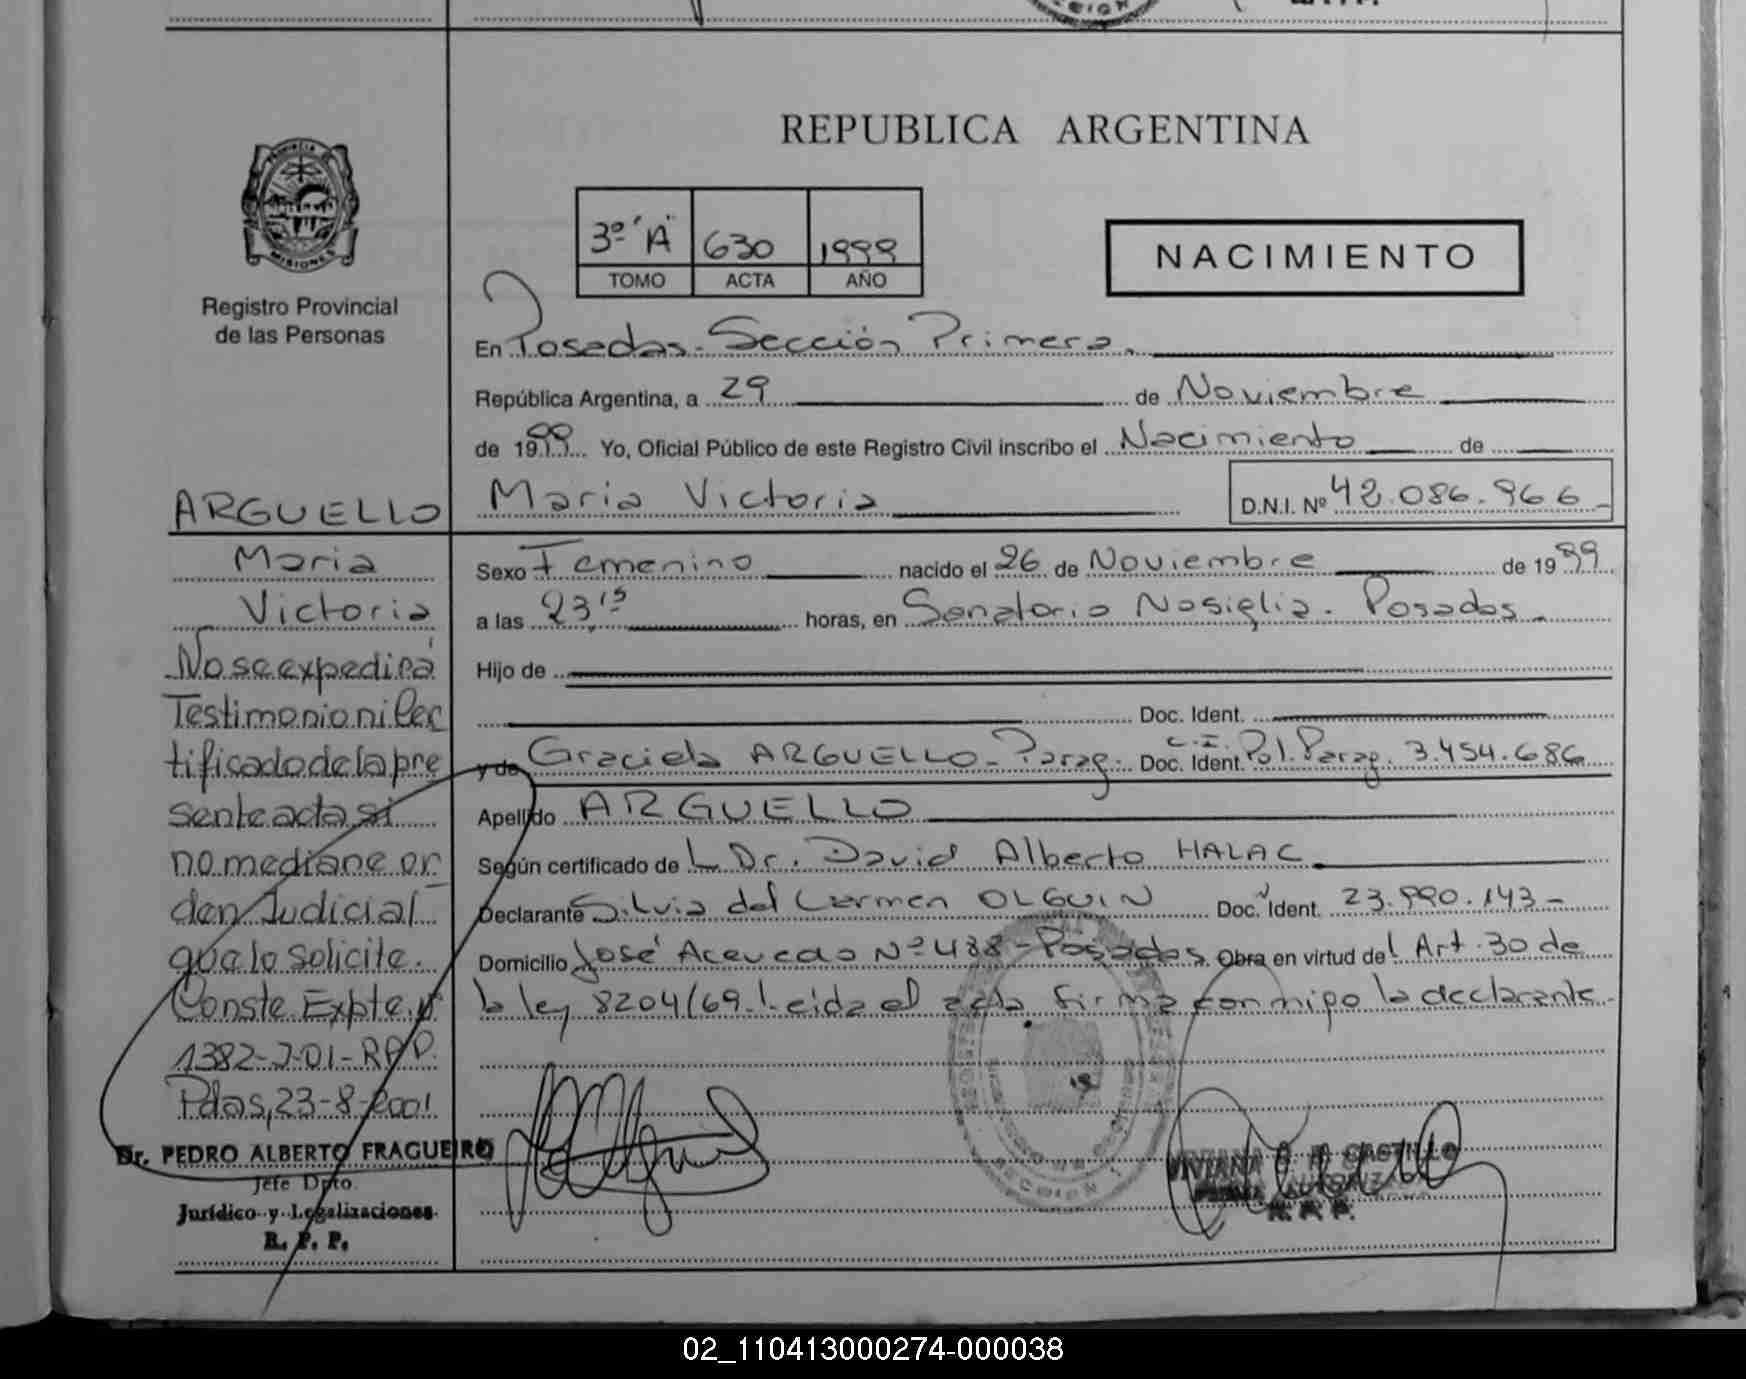 REPUBLICA ARGENTINA
PROVINCIA DE
MISIONES
Registro Provincial
de las Personas
3º "A" 630 1999
TOMO ACTA AÑO
NACIMIENTO
En Posadas - Sección Primera.
República Argentina, a 29 de Noviembre
de 1999 Yo, Oficial Público de este Registro Civil inscribo el Nacimiento de
Maria Victoria D.N.I. Nº 42.086.966
Sexo Femenino nacido el 26 de Noviembre de 1999
a las 23,15 horas, en Sanatorio Nosiglia. Posadas
Hijo de
Doc. Ident.
y de Graciela ARGUELLO - Parag. Doc. Ident. C.I. Pol. Parag. 3.454.686
Apellido ARGUELLO
Según certificado de L Dr. David Alberto HALAC
Declarante Silvia del Carmen OLGUIN Doc. Ident. 23.990.143 -
Domicilio José Acevedo Nº 438 - Posadas. Obra en virtud del Art. 30 de
la ley 8204/69. Leida el acta firma conmigo la declarante.
ARGUELLO
Maria
Victoria
No se expedirá
Testimonio ni Cer
tificado de la pre
sente acta si
no mediane or
den Judicial
que lo solicite.
Conste. Expte. nº
1382-J-01-RPP.
Pdas, 23-8-2001
Dr. PEDRO ALBERTO FRAGUEIRO
Jefe Dpto.
Jurídico y Legalizaciones
R. P. P.
VIVIANA CASTILLO
R. P. P.
SECCION 1
02_110413000274-000038